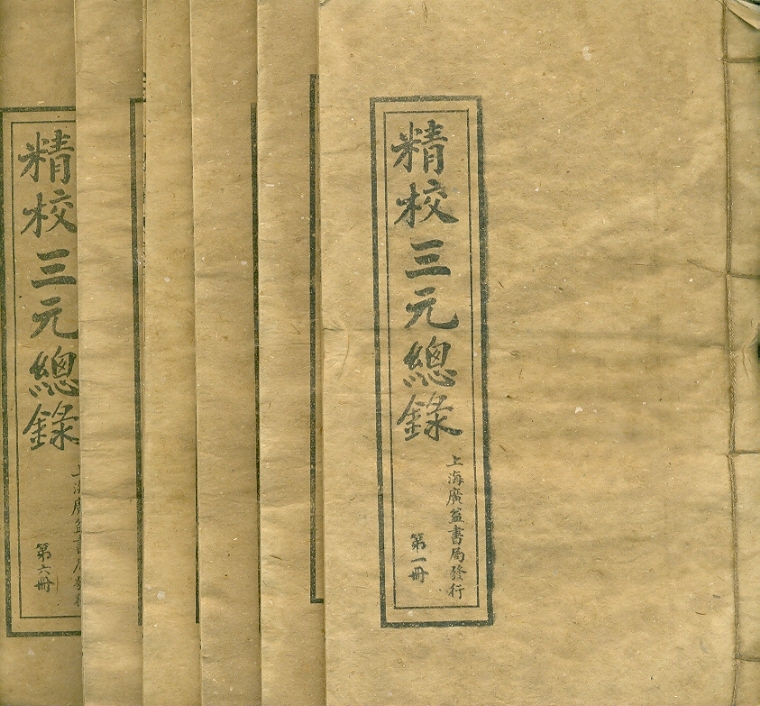 精校三元總錄
上海廣益書局發行
第一冊
精校三元總錄
上海廣益書局發行
第六冊